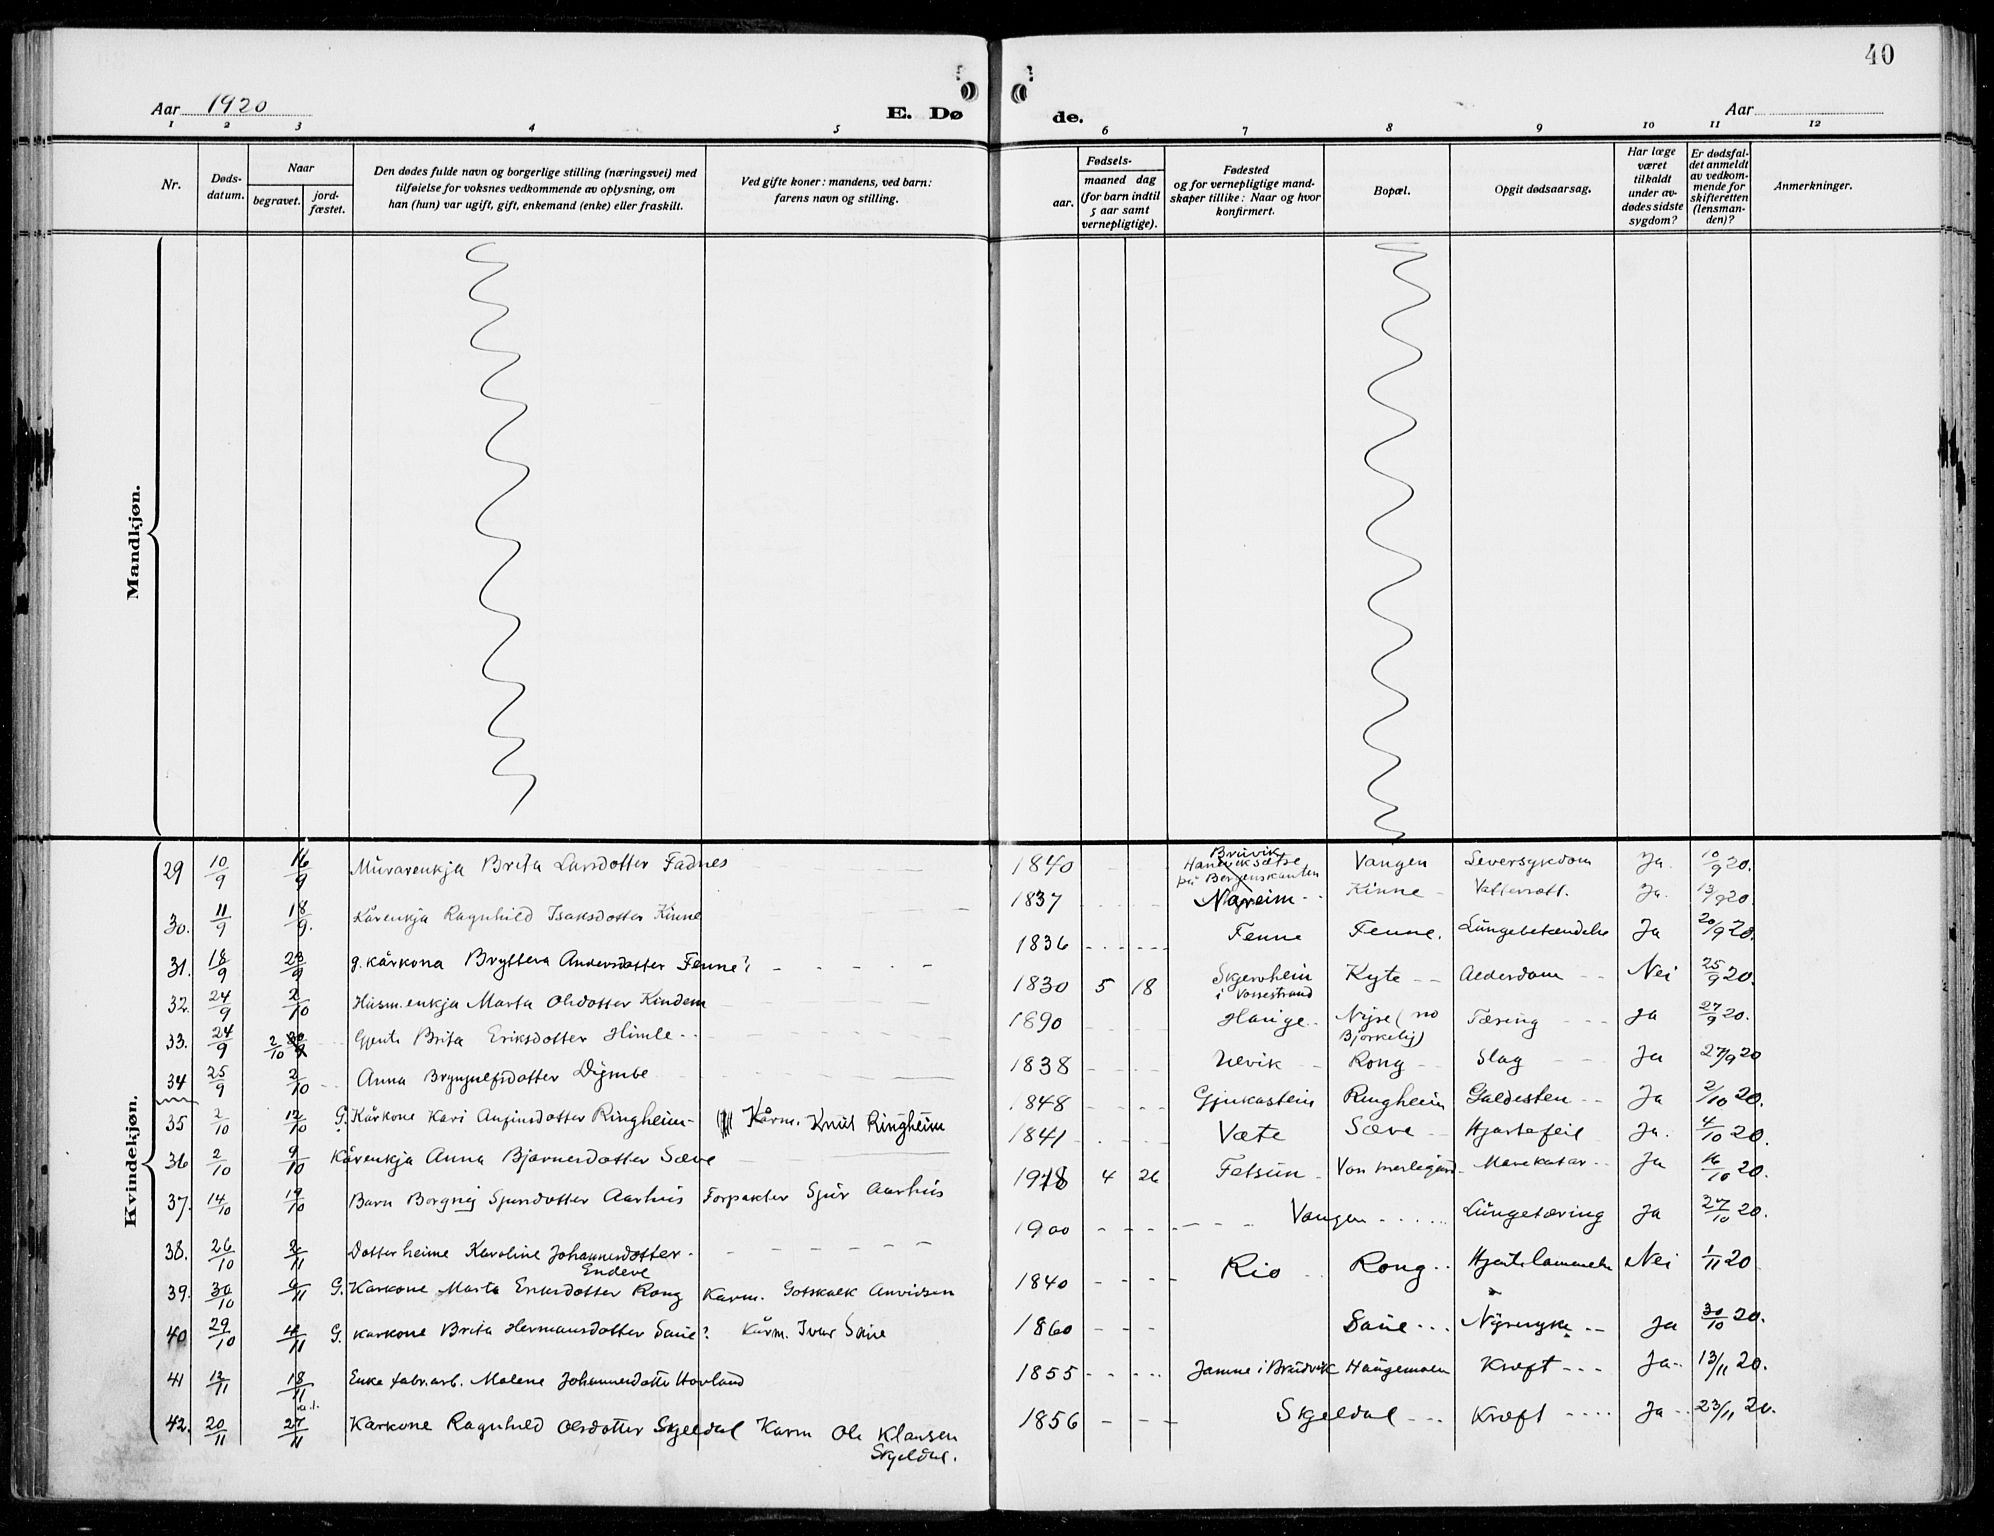 40
Aar 1920
E. Dø
de.
Aar
1 2 3 4 5 6 7 8 9 10 11 12
Nr.
Døds-
datum.
Naar
begravet.
jord-
fæstet.
Den dødes fulde navn og borgerlige stilling (næringsvei) med
tilføielse for voksnes vedkommende av oplysning, om
han (hun) var ugift, gift, enkemand (enke) eller fraskilt.
Ved gifte koner: mandens, ved barn:
farens navn og stilling.
Fødsels-
aar.
maaned dag
(for barn indtil
5 aar samt
vernepligtige).
Fødested
og for vernepligtige mand-
skaper tillike: Naar og hvor
konfirmert.
Bopæl.
Opgit dødsaarsag.
Har læge
været
tilkaldt
under av-
dødes sidste
sygdom?
Er dødsfal-
det anmeldt
av vedkom-
mende for
skifteretten
(lensman-
den)?
Anmerkninger.
Mandkjøn.
Kvindekjøn.
29 10/9 16/9 Murarenkja Brita Larsdotter Fadnes 1840 Bruvik på Bergenskanten Vangen Leversykdom Ja 10/9 20.
30. 11/9 18/9. Kårenkja Ragnhild Isaksdotter Kinne 1837 Kinne Vattersott. Ja. 13/9 20.
31. 18/9 23/9 g. kårkona Bryttera Andersdotter Fenne 1836 Fenne Fenne. Lungebetændelse Ja 20/9 20.
32. 24/9 2/10 Husm.enkja Marta Olsdotter Kindem 1830 5 18 Skjervheim i Vossestrand Kyte Alderdom Nei 25/9 20.
33. 24/9 2/10 Gjenta Brita Eriksdotter Himle 1890 Hauge Nyre (no Bjørkelig) Tæring Ja 27/9 20.
34 25/9 2/10 Anna Brynjulfsdotter Dymbe 1838 Ulvik Rong Slag Ja 27/9 20
35 2/10 12/10 G. Kårkone Kari Anfinsdotter Ringheim Kårm. Knut Ringheim 1848 Gjukastein Ringheim Galdesten Ja 2/10 20.
36 2/10 9/10 Kårenkja Anna Bjørnersdotter Sæve 1841 Væte Sæve Hjartefeil Ja. 4/10 20.
37. 14/10 19/10 Barn Borgny Sjursdotter Aarhus Forpakter Sjur Aarhus 1918 4 26 Ja 16/10 20.
38. 26/10 2/11 Dotter heime Karoline Johannesdotter Endeve 1900 Vangen Lungetæring Ja 27/10 20.
39. 30/10 6/11 G. Karkone Marta Eriksdotter Rong Karm. Gotskalk Anvidsen 1840 Rio Rong Hjertelammelse Nei 1/11 20
40 29/10 4/11 G. Karkone Brita Hermansdotter Saue? Kårm. Ivar Saue 1860 Saue Nyresyke Ja 30/10 20.
41 12/11 18/11 Enke fabr.arb. Malene Johannesdotter Hovland 1855 Jamne i Brudvik Haugemoen Kræft Ja 13/11 20.
42. 20/11 27/11 Karkone Ragnhild Olsdotter Skjeldal Karm Ole Klausen Skjeldal. 1856 Skjeldal Kræft Ja 23/11 20.